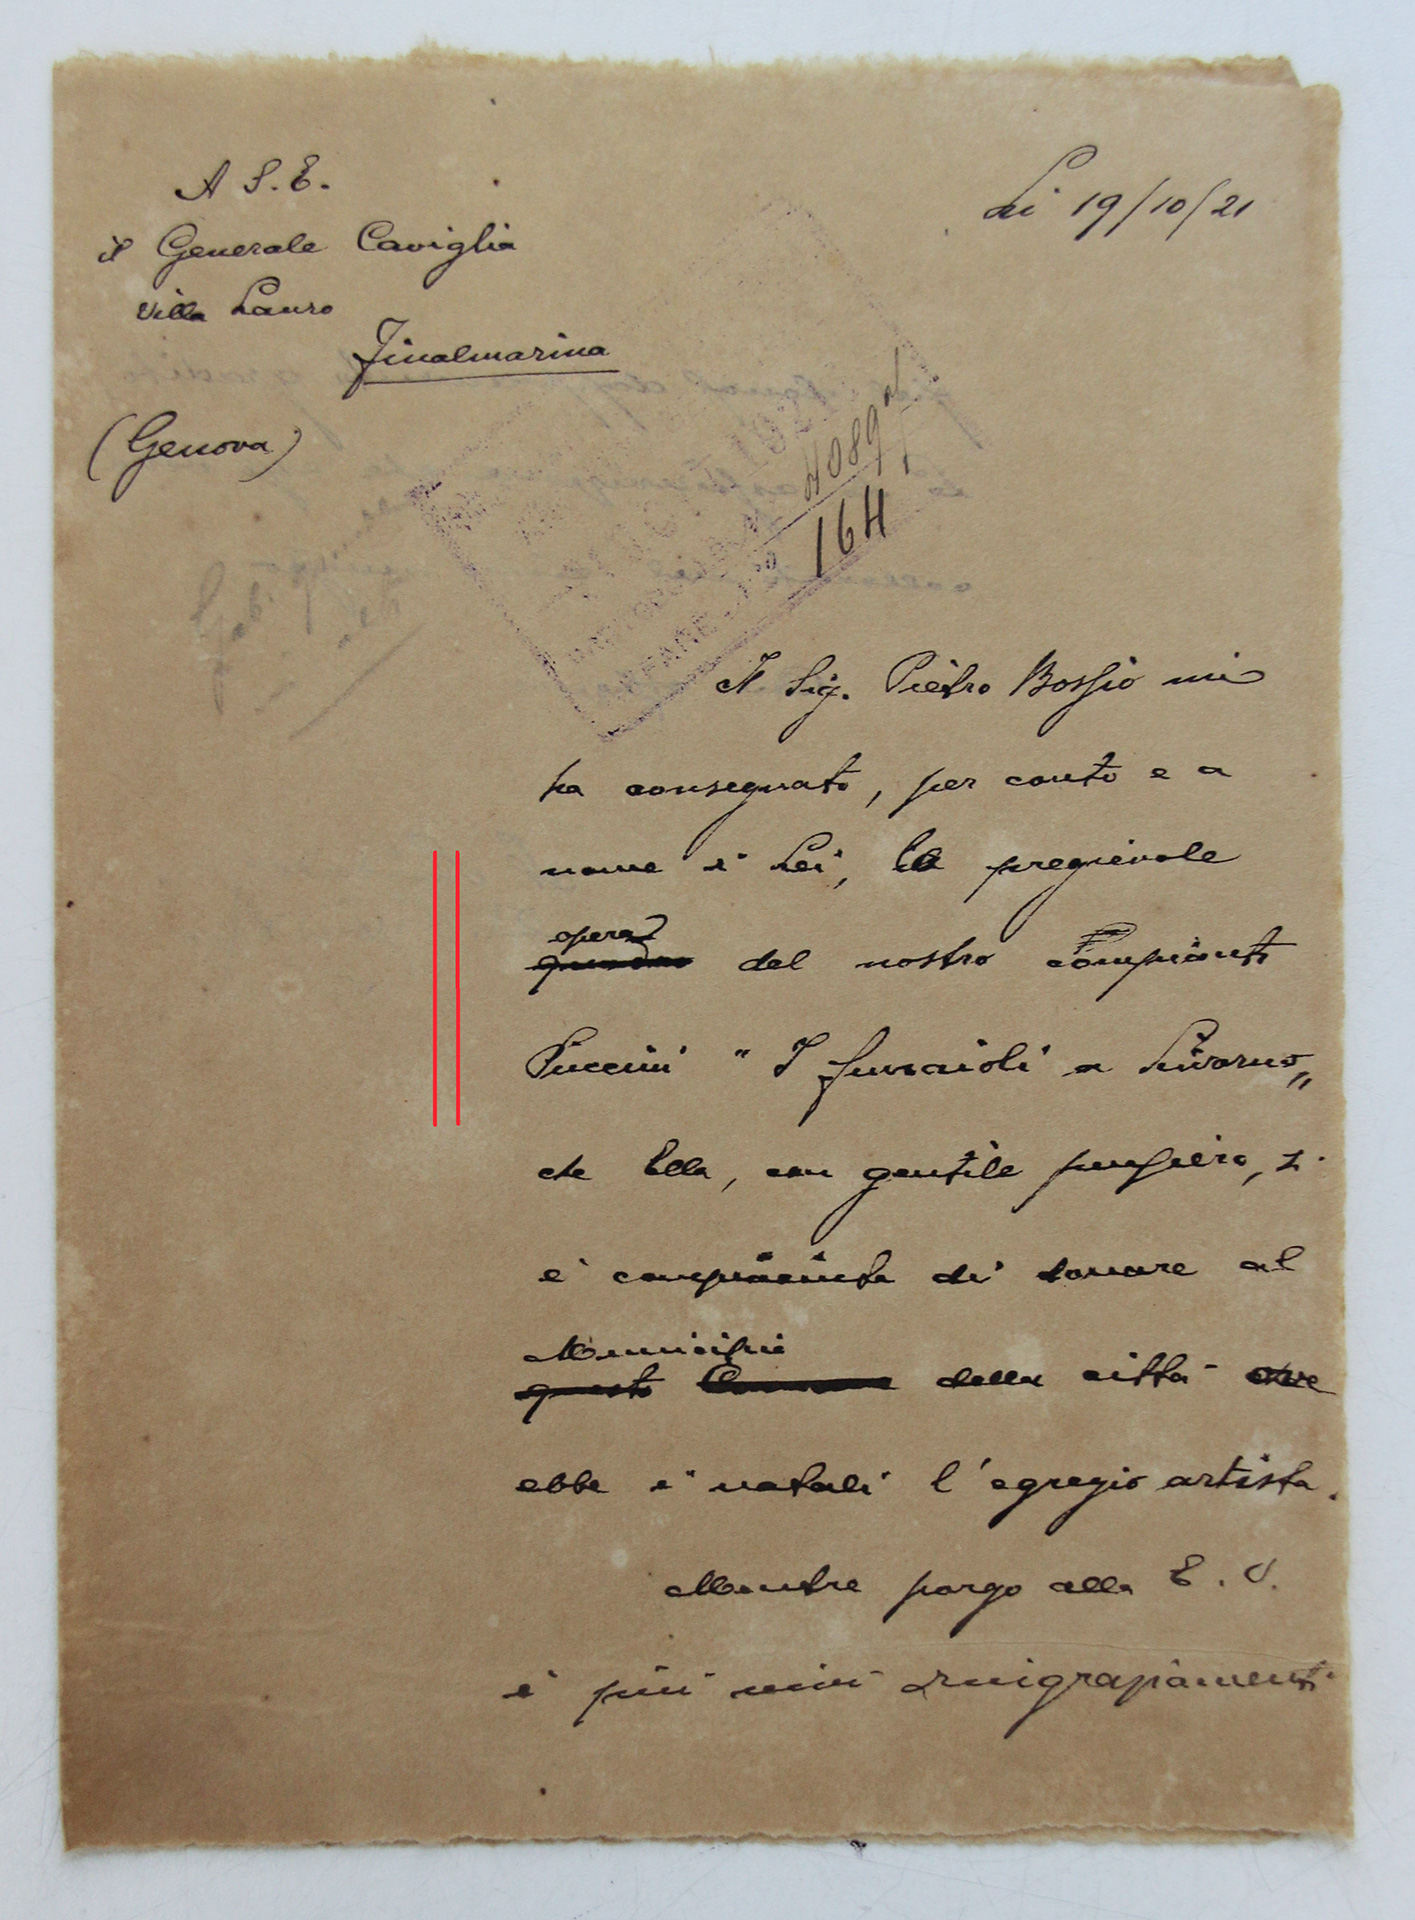 A S. E.
il Generale Caviglia
Villa Lauro
Finalmarina
(Genova)
Li 19/10/21
4089
164
Il Sig. Pietro Bossio mi
ha consegnato, per conto e a
nome di Lei, la pregievole
opera
quadro del nostro compianto
Puccini "I fornaioli a Livorno„
che Ella, con gentile pensiero, si
è compiaciuta di donare al
Municipio
questo Comune della città ove
ebbe i natali l'egregio artista.
Mentre porgo alla E. V.
i più vivi ringraziamenti